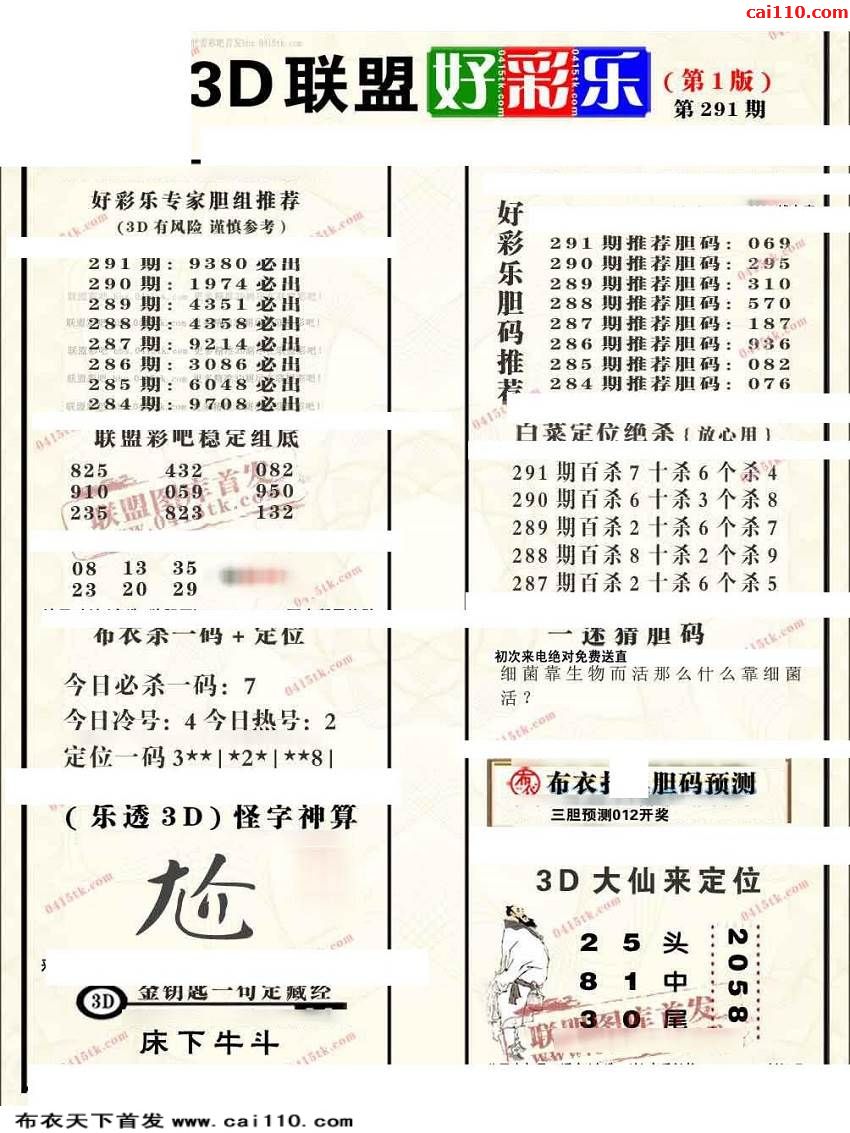 cai110.com
3D联盟好彩乐
(第1版)
第291期
好彩乐专家胆组推荐
(3D有风险 谨慎参考)
291期: 9380必出
290期: 1974必出
289期: 4351必出
288期: 4358必出
287期: 9214必出
286期: 3086必出
285期: 6048必出
284期: 9708必出
联盟彩吧稳定组底
825 432 082
910 059 950
235 823 132
08 13 35
23 20 29
布衣杀一码+定位
今日必杀一码: 7
今日冷号: 4 今日热号: 2
定位一码 3**|*2*|**8|
(乐透3D)怪字神算
尬
3D 金钥匙一句定藏经
床下牛斗
好彩乐胆码推荐
291期推荐胆码: 069
290期推荐胆码: 295
289期推荐胆码: 310
288期推荐胆码: 570
287期推荐胆码: 187
286期推荐胆码: 936
285期推荐胆码: 082
284期推荐胆码: 076
白菜定位绝杀{放心用}
291期百杀7十杀6个杀4
290期百杀6十杀3个杀8
289期百杀2十杀6个杀7
288期百杀8十杀2个杀9
287期百杀2十杀6个杀5
一迷猜胆码
初次来电绝对免费送直
细菌靠生物而活那么什么靠细菌
活?
布衣 胆码预测
三胆预测012开奖
3D大仙来定位
2 5 头
8 1 中
3 0 尾
2058
联盟图库首发
www.0415tk.com
0415tk.com
布衣天下首发 www.cai110.com